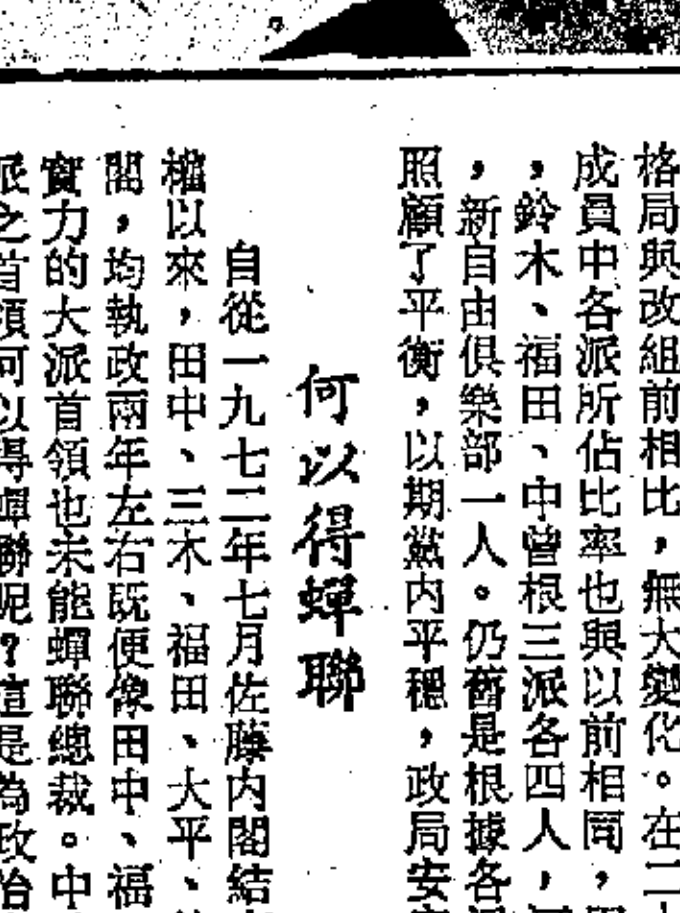 格局與改組前相比，無大變化。在二
成員中各派所佔比率也與以前相同，
，鈴木、福田、中曾根三派各四人，河
，新自由俱樂部一人。仍舊是根據各
照顧了平衡，以期黨内平穩，政局安
何以得蟬聯
自從一九七二年七月佐藤内閣結
權以來，田中、三木、福田、大平、
閣，均執政兩年左右既便像田中、福
實力的大派首領也未能蟬聯總裁。中
派之首領何以得蟬聯呢？這是為政治